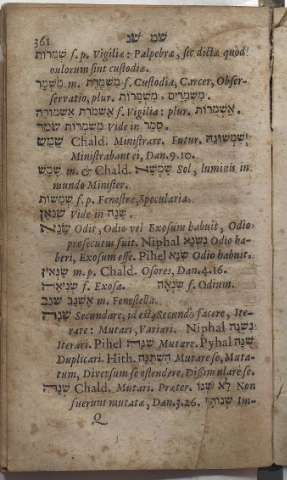 361 שמ שנ
שְׁמֻרוֹת f. p. Vigiliæ: Palpebræ, sic dictæ quod
oculorum sint custodiæ.
מִשְׁמָר m. מִשְׁמֶרֶת f. Custodia, Carcer, Obser-
servatio, plur. מִשְׁמָרִים. מִשְׁמָרוֹת.
אַשְׁמוּרָה אַשְׁמֹרֶת f. Vigilia: plur. אַשְׁמֻרוֹת.
Vide in סָמַר
שָׁמַשׁ Chald. Ministrare. Futur. יְשַׁמְּשׁוּנֵּהּ
Ministrabant ei, Dan. 9.10.
שֶׁמֶשׁ m. & Chald. שִׁמְשָׁא Sol, luminis in
mundo Minister.
שְׁמָשׁוֹת f. p. Fenestræ, Specularia.
שִׁנְאָן Vide in שָׁנָה.
שָׂנֵא Odit, Odio vel Exosum habuit, Odio
præsecutus suit. Niphal נִשְׂנָא Odio ha-
beri, Exosum esse. Pihel שִׂנֵּא Odio habuit.
שָׂנְאִין m. p. Chald. Osores, Dan. 4.16.
שְׂנִיאָה f. Exosa. שִׂנְאָה f. Odium.
שנב אֶשְׁנָב m. Fenestella.
שָׁנָה Secundare, id est, Secundo facere, Ite-
rare: Mutari, Variari. Niphal נִשְׁנָה
Iterari. Pihel שִׁנָּה Mutare. Pyhal שֻׁנָּה
Duplicari. Hith. הִשְׁתַּנָּה Mutare se, Muta-
tum, Diversum se ostendere, Dissimulare se.
שְׁנָה Chald. Mutari. Præter. לָא שְׁנוֹ Non
fuerunt mutata, Dan. 3.26. Im-
Q